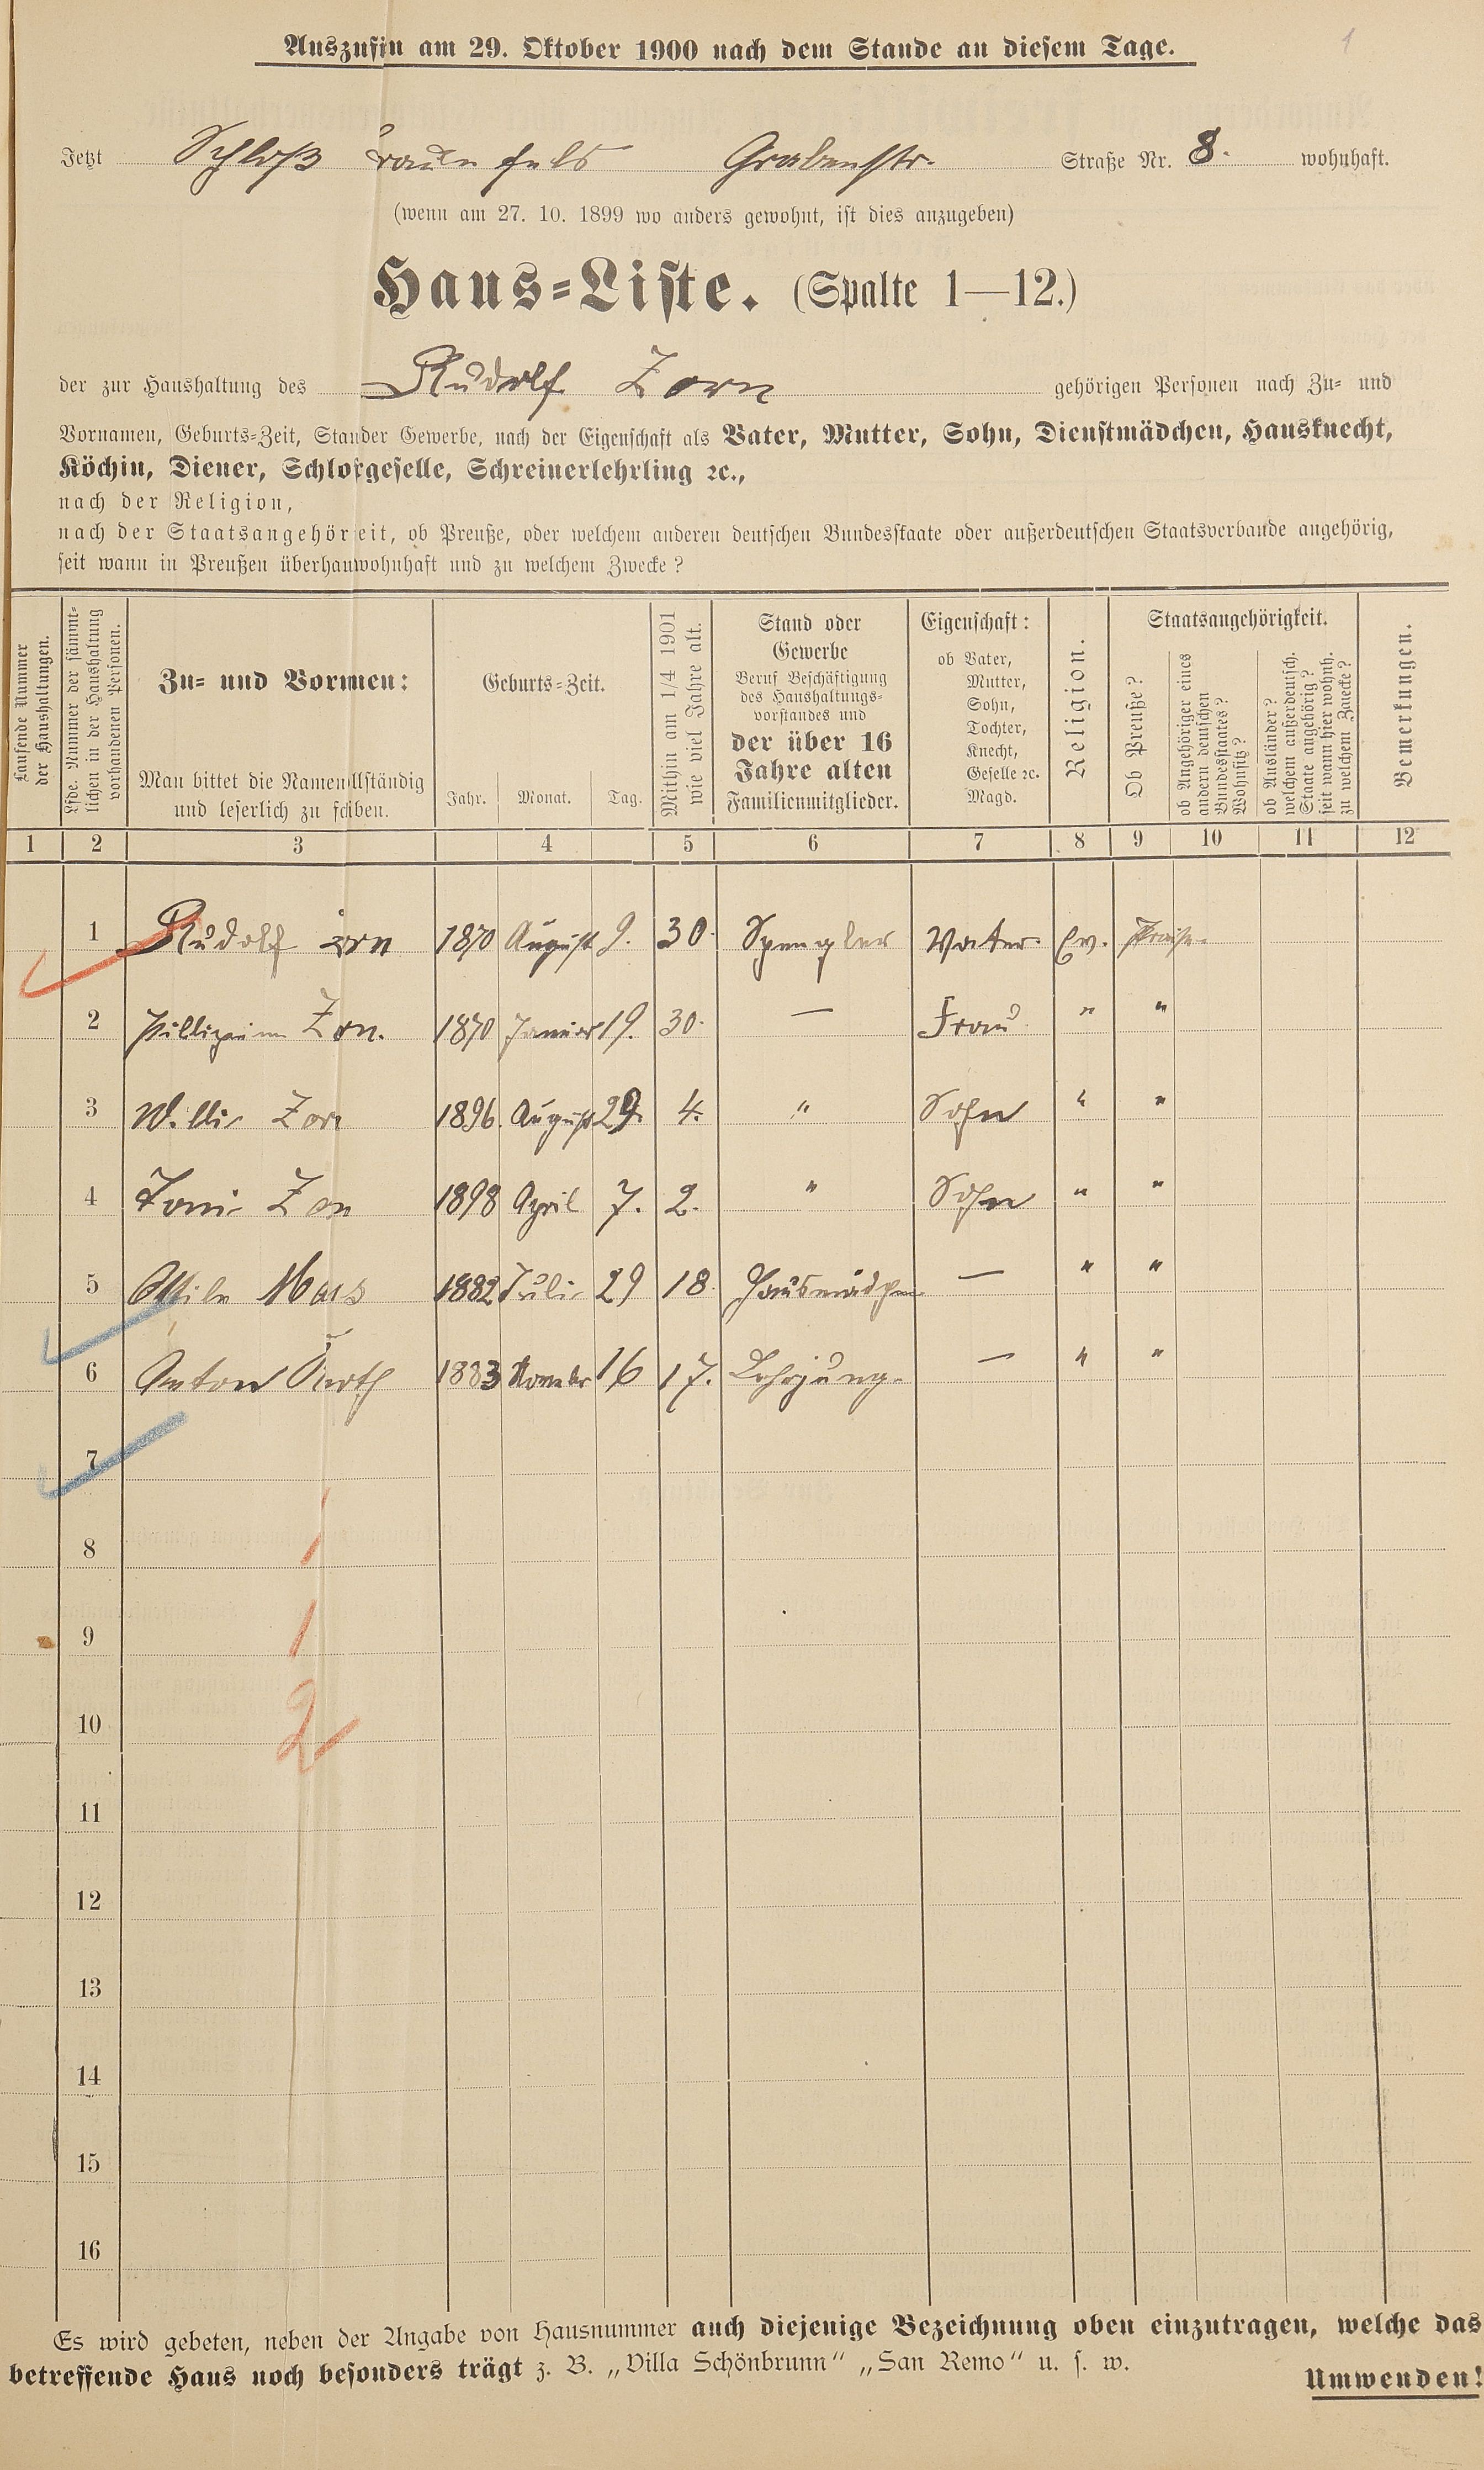 Auszufüllen am 29. Oktober 1900 nach dem Stande an diesem Tage.
1
Jetzt Schloß Braunfels Grabenstr. Straße Nr. 8. wohnhaft.
(wenn am 27. 10. 1899 wo anders gewohnt, ist dies anzugeben)
Haus-Liste. (Spalte 1—12.)
der zur Haushaltung des Rudolf Zorn gehörigen Personen nach Zu- und
Vornamen, Geburts-Zeit, Stand oder Gewerbe, nach der Eigenschaft als Vater, Mutter, Sohn, Dienstmädchen, Hausknecht,
Köchin, Diener, Schlossergeselle, Schreinerlehrling ꝛc.,
nach der Religion,
nach der Staatsangehörigkeit, ob Preuße, oder welchem anderen deutschen Bundesstaate oder außerdeutschen Staatsverbande angehörig,
seit wann in Preußen überhaupt wohnhaft und zu welchem Zwecke?
Laufende Nummer
der Haushaltungen.
Lfde. Nummer der sämmt-
lichen in der Haushaltung
vorhandenen Personen.
Zu- und Vornamen:
Man bittet die Namen vollständig
und leserlich zu schreiben.
Geburts-Zeit.
Jahr. Monat. Tag.
Mithin am 1/4 1901
wie viel Jahre alt.
Stand oder
Gewerbe
Beruf Beschäftigung
des Haushaltungs-
vorstandes und
der über 16
Jahre alten
Familienmitglieder.
Eigenschaft:
ob Vater,
Mutter,
Sohn,
Tochter,
Knecht,
Geselle ꝛc.
Magd.
Religion.
Staatsangehörigkeit.
Ob Preuße?
ob Angehöriger eines
andern deutschen
Bundesstaates?
Wohnsitz?
ob Ausländer?
welchem außerdeutsch.
Staate angehörig?
seit wann hier wohnh.
zu welchem Zwecke?
Bemerkungen.
1 2 3 4 5 6 7 8 9 10 11 12
1 Rudolf Zorn 1870 August 9. 30. Spengler Vater. Ev. Preuße.
2 Zorn. 1870 Januar 19. 30. — Frau " "
3 Willi Zorn 1896. August 29. 4. " Sohn " "
4 Toni Zorn 1898 April 7. 2. " Sohn " "
5 Ottilie 1882 Juli 29 18. Hausmädchen — " "
6 Anton 1883 November 16 17. Lehrjung. — " "
7
8 1
9 1
10 2
11
12
13
14
15
16
Es wird gebeten, neben der Angabe von Hausnummer auch diejenige Bezeichnung oben einzutragen, welche das
betreffende Haus noch besonders trägt z. B. „Villa Schönbrunn" „San Remo" u. s. w.
Umwenden!